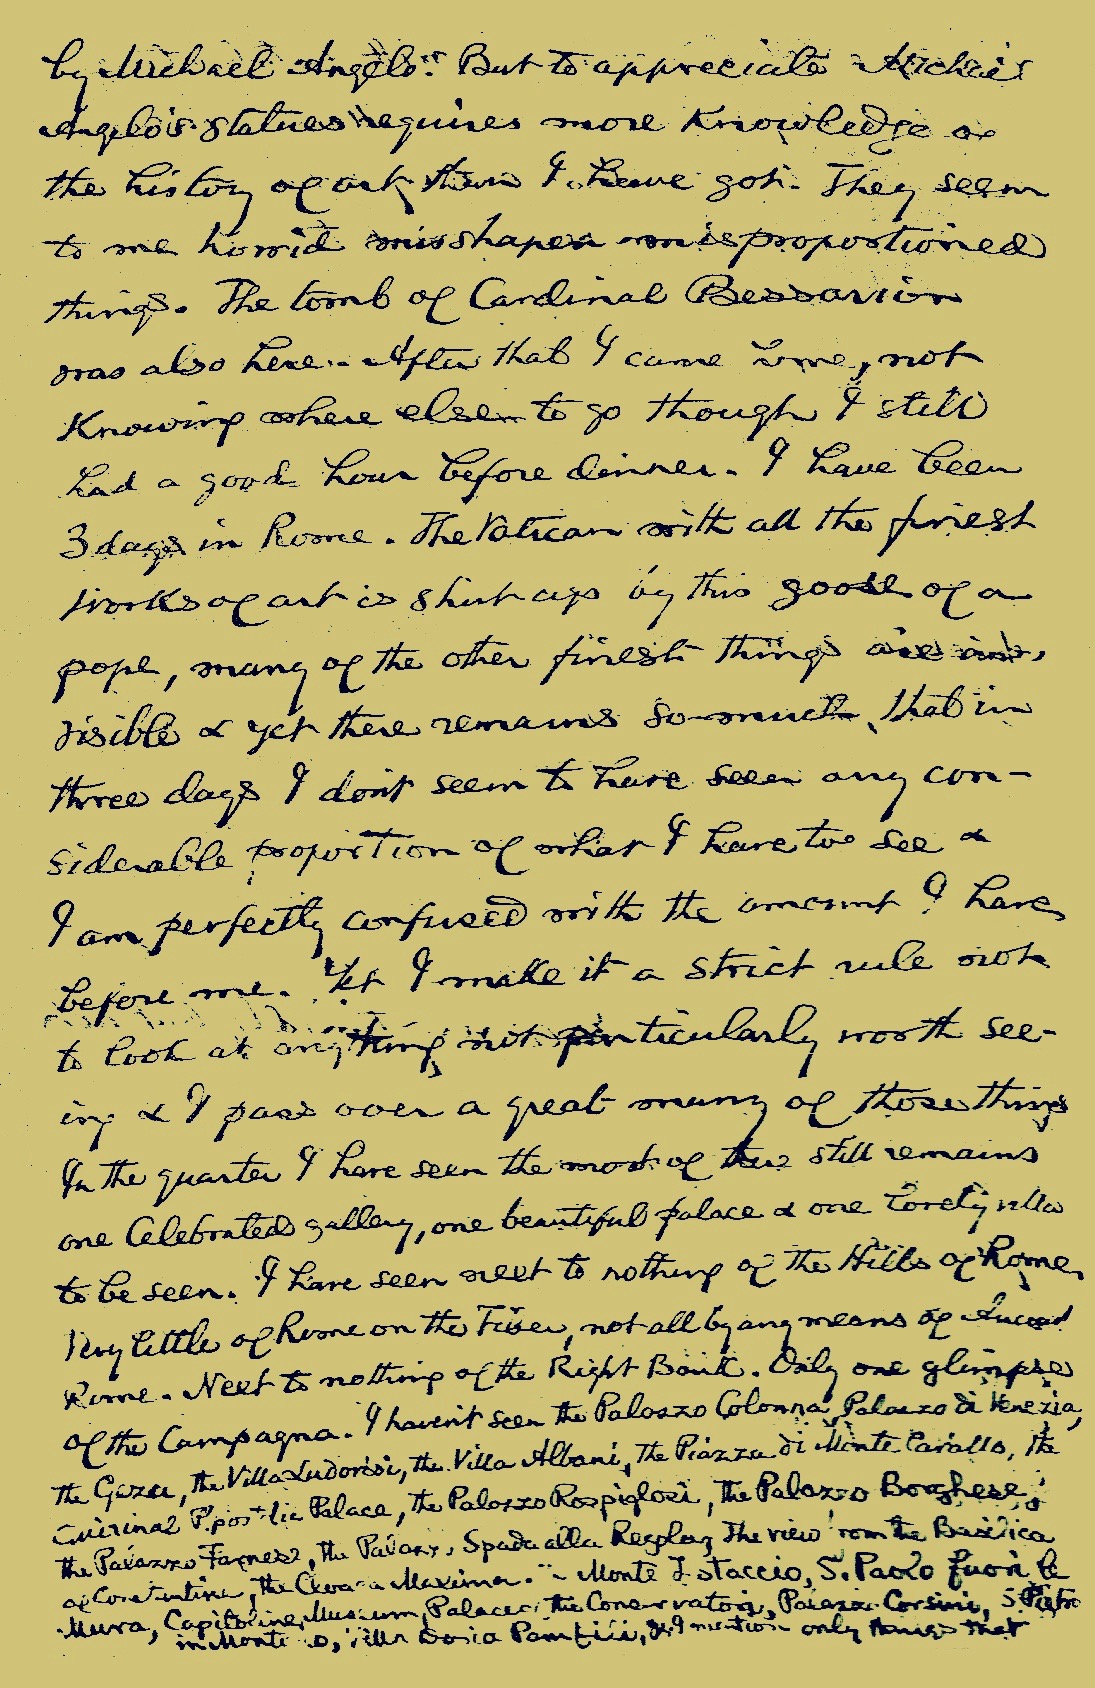 by Michael Angelo". But to appreciate Michael
Angelo's statues requires more knowledge of
the history of art than I have got. They seem
to me horrid misshapen misproportioned
things. The tomb of Cardinal Bessarion
was also here. After that I came home, not
knowing where else to go though I still
had a good hour before dinner. I have been
3 days in Rome. The Vatican with all the finest
works of art is shut up by this goose of a
pope, many of the other finest things are in-
visible & yet there remains so much, that in
three days I don't seem to have seen any con-
siderable proportion of what I have to see &
I am perfectly confused with the amount I have
before me. Yet I make it a strict rule not
to look at anything not particularly worth see-
ing & I pass over a great many of those things
In the quarter I have seen the most of there still remains
one Celebrated gallery, one beautiful palace & one lovely villa
to be seen. I have seen next to nothing of the Hills of Rome,
Very little of Rome on the Tiber, not all by any means of Ancient
Rome. Next to nothing of the Right Bank. Only one glimpse
of the Campagna. I havent seen the Palazzo Colonna, Palazzo di Venezia,
the Gesu, the Villa Ludovisi, the Villa Albani, the Piazza di Monte Cavallo, the
Quirinal Apostolic Palace, the Palazzo Rospigliosi, the Palazzo Borghese,
the Palazzo Farnese, the Palazzo Spada alla Regola, The view from the Basilica
of Constantine, the Cloaca Maxima. Monte Testaccio, S. Paolo fuori le
Mura, Capitoline Museum, Palace of the Conservatori, Palazzo Corsini, S Pietro
in Montorio, Villa Doria Pamfili, & I mention only things that